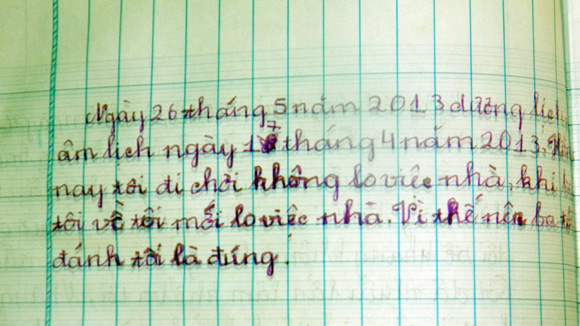 Ngày 26 tháng 5 năm 2013 dương lịch
âm lịch ngày 17 tháng 4 năm 2013.
nay tôi đi chơi không lo việc nhà, khi
tôi về tôi mới lo việc nhà. Vì thế nên ba
đánh tôi là đúng.